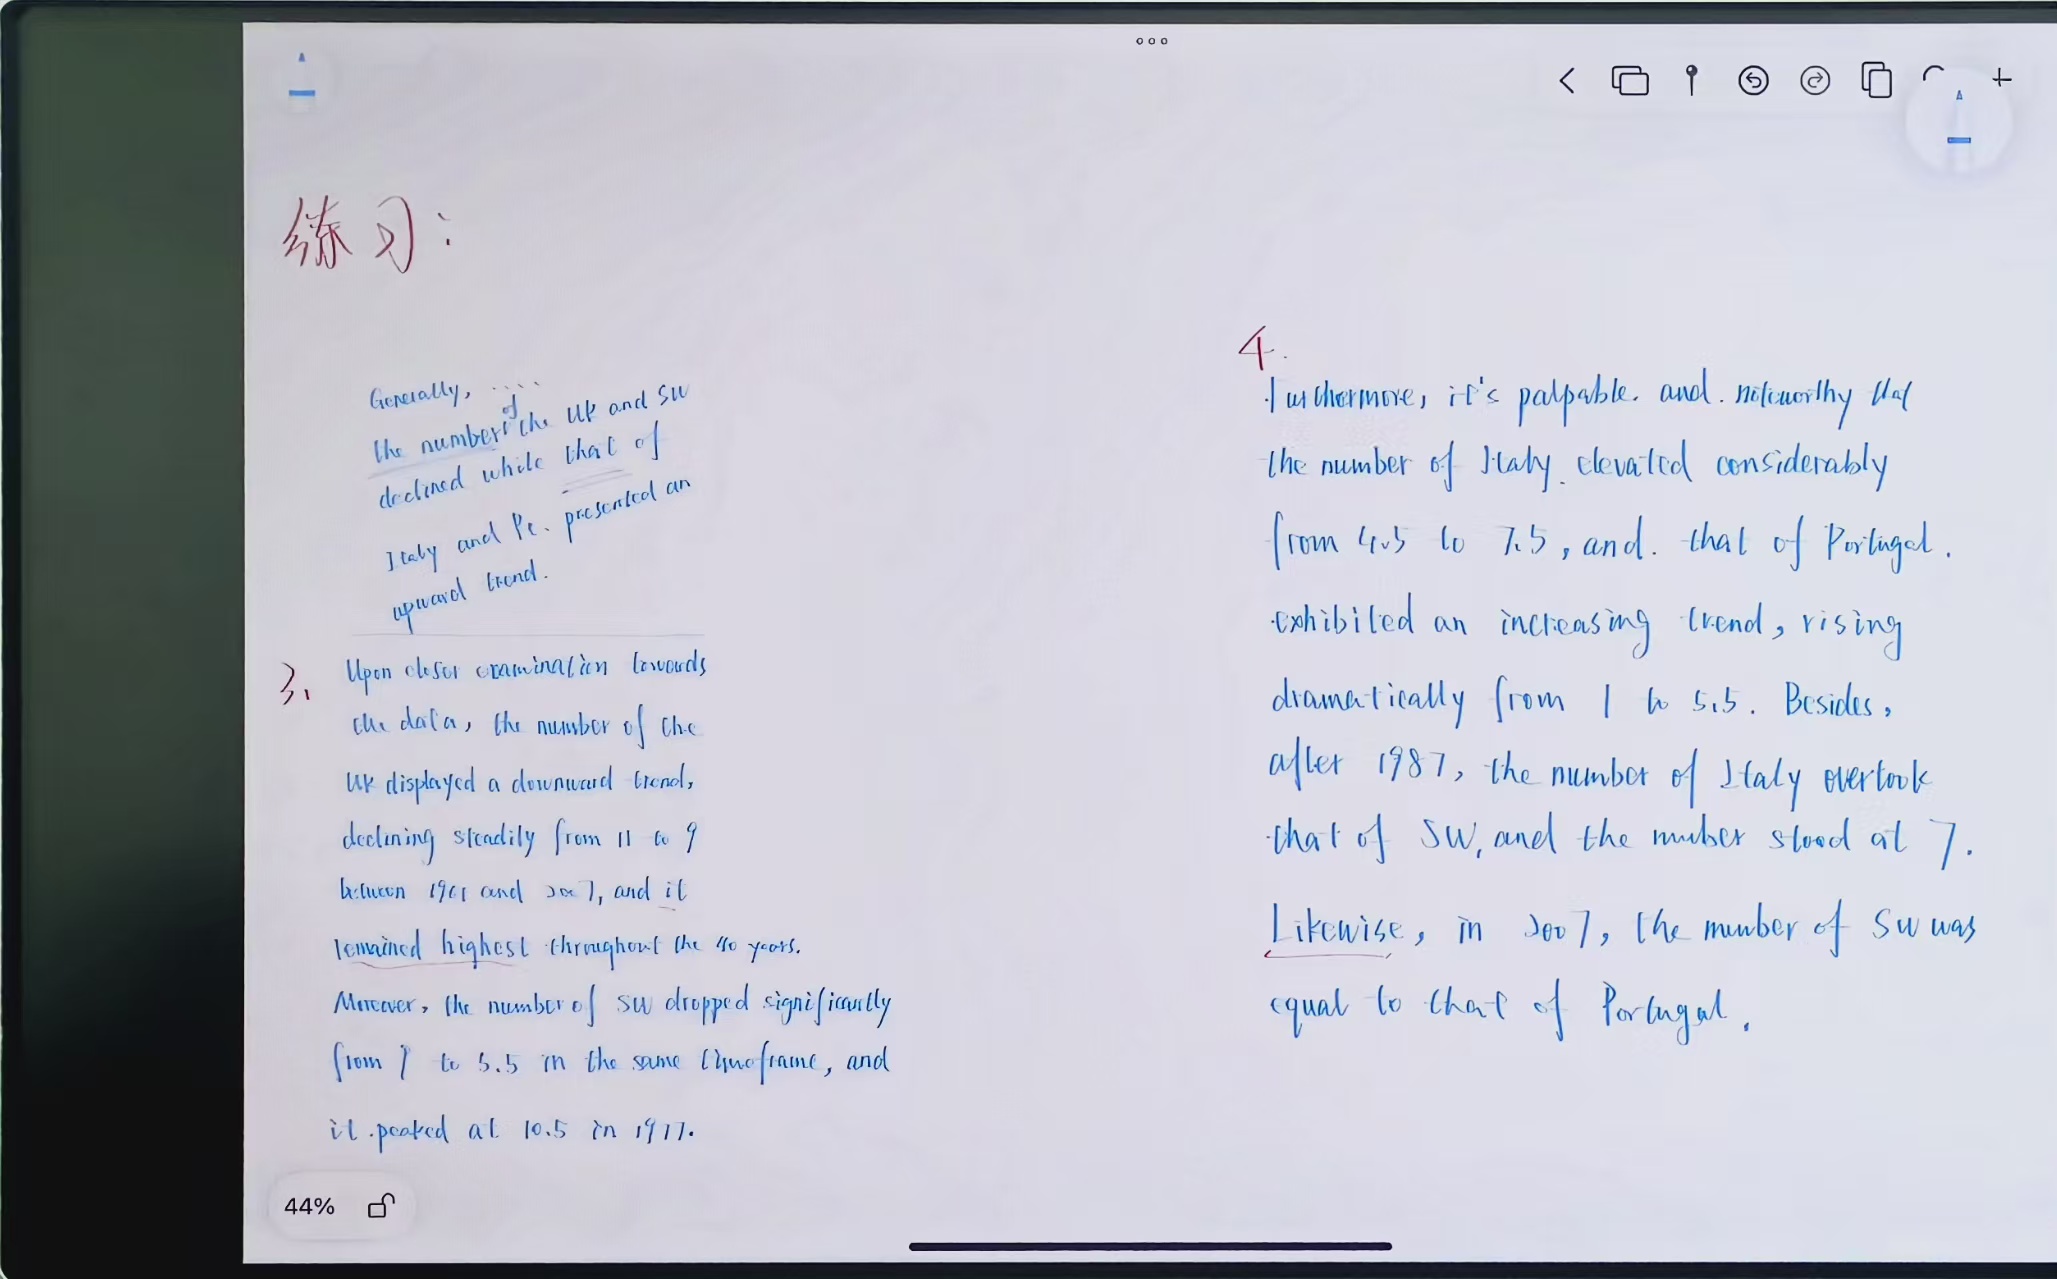 练习:
Generally, ....
the number of the UK and SW
declined while that of
Italy and Po. presented an
upward trend.
3.
Upon closer examination towards
the data, the number of the
UK displayed a downward trend,
declining steadily from 11 to 9
between 1961 and 2007, and it
remained highest throughout the 40 years.
Moreover, the number of SW dropped significantly
from 7 to 5.5 in the same timeframe, and
it peaked at 10.5 in 1977.
44%
4.
Furthermore, it's palpable and noteworthy that
the number of Italy elevated considerably
from 4.5 to 7.5, and that of Portugal
exhibited an increasing trend, rising
dramatically from 1 to 5.5. Besides,
after 1987, the number of Italy overtook
that of SW, and the number stood at 7.
Likewise, in 2007, the number of SW was
equal to that of Portugal.